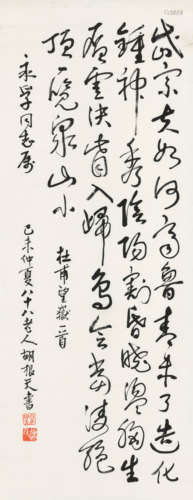 岱宗夫如何齊魯青未了造化
鍾神秀陰陽割昏曉盪胸生
層雲決眥入歸鳥會當凌絕
頂一覽眾山小
杜甫望嶽一首
永同志屬
己未仲夏八十八老人胡根天書